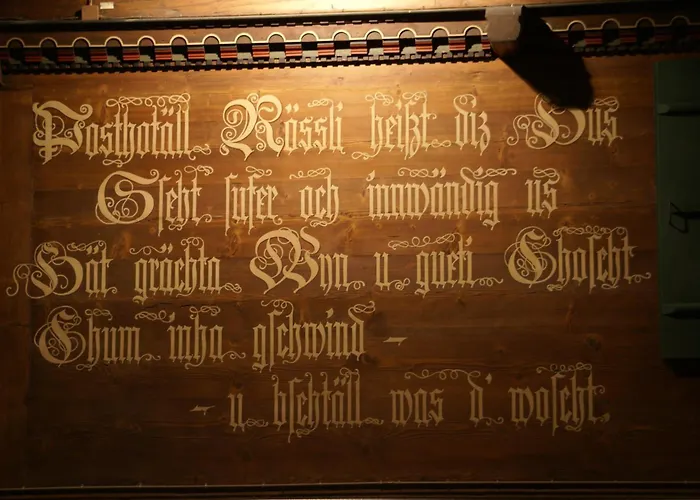 Posthotäll Rössli heißt diz Hus
Gseht sufer och innwändig us
Hät grächta Wyn u gueti Choscht
Chum inha gschwind -
- u bschtäll was d' woscht